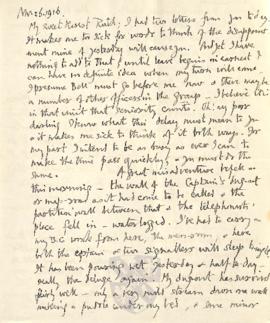 Nov. 26. 1916.
My sweet Rose of Ruth; I had two letters from you today.
It makes me so sick for words to think of the disappoint-
ment mine of yesterday will cause you. And yet I have
nothing to add to that & until leave begins in earnest I
can have no definite idea when my turn will come.
I presume Bell must go before me now & there may be
a number of other officers in the group. I believe
in that visit that seniority counts. Oh! my poor
darling I know what this delay must mean to you
& it makes me sick to think of it both ways. For
my part I intend to be as busy as ever I can to
make the time pass quickly & you must do the
same. A great misadventure
this morning - the wall of the Captain's
or map-room as it had come to be called & the
partition wall between that & the telephonists'
place fell in - water logged. I've had to carry on
my B.C. work from here, the mess-room, & here
both the captain & two signallers will sleep tonight.
It has been pouring wet yesterday & half to-day -
really the deluge again. My dugout has survived
fairly well - only a very mild stream down one wall
making a puddle under my bed, & some minor